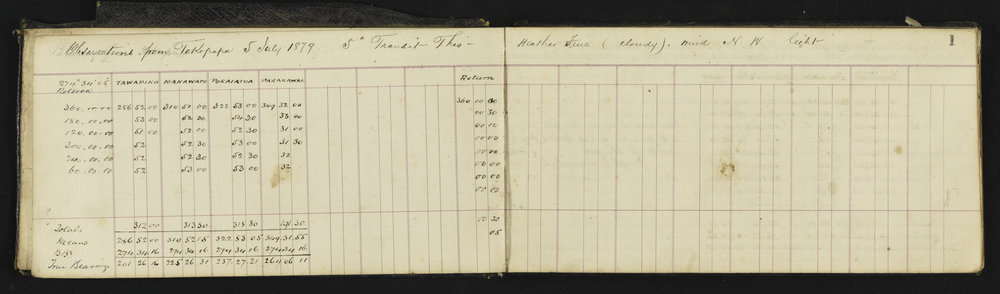 Observations from Tokepapa 5 July 1879 5" Transit Theo- Weather Fine (cloudy). Wind N.W. light 1
274° 34' 05" TAWAPIKO MANAWAPO PUKAIATUA PARAKAWAI Return
360.00.00 286 52 00 310 51 00 322 53 00 349 32 00 360 00 30
180.00.00 53 00 52 30 54 30 33 00 00 30
120.00.00 51 00 52 00 52 30 31 00 00 00
300.00.00 52 52 30 53 00 31 30 00 00
240.00.00 52 52 30 52 30 32 00 00
60.00.00 52 53 00 53 00 32 00 00
00 00
Totals 312 00 313 30 318 30 191 30 00 30
Means 286 52 00 310 52 15 322 53 05 349 31 55 05
274.34.16 274 34 16 274 34 16 274 34 16
True Bearing 201 26 16 225 26 31 237.27.21 264 06 11